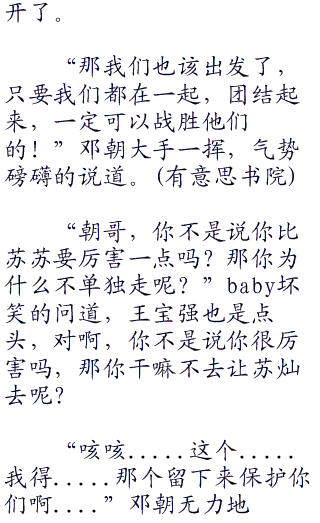 开了。
“那我们也该出发了，
只要我们都在一起，团结起
来，一定可以战胜他们
的！”邓朝大手一挥，气势
磅礴的说道。(有意思书院)
“朝哥，你不是说你比
苏苏要厉害一点吗？那你为
什么不单独走呢？”baby坏
笑的问道，王宝强也是点
头，对啊，你不是说你很厉
害吗，那你干嘛不去让苏灿
去呢？
“咳咳.....这个.....
我得.....那个留下来保护你
们啊....”邓朝无力地